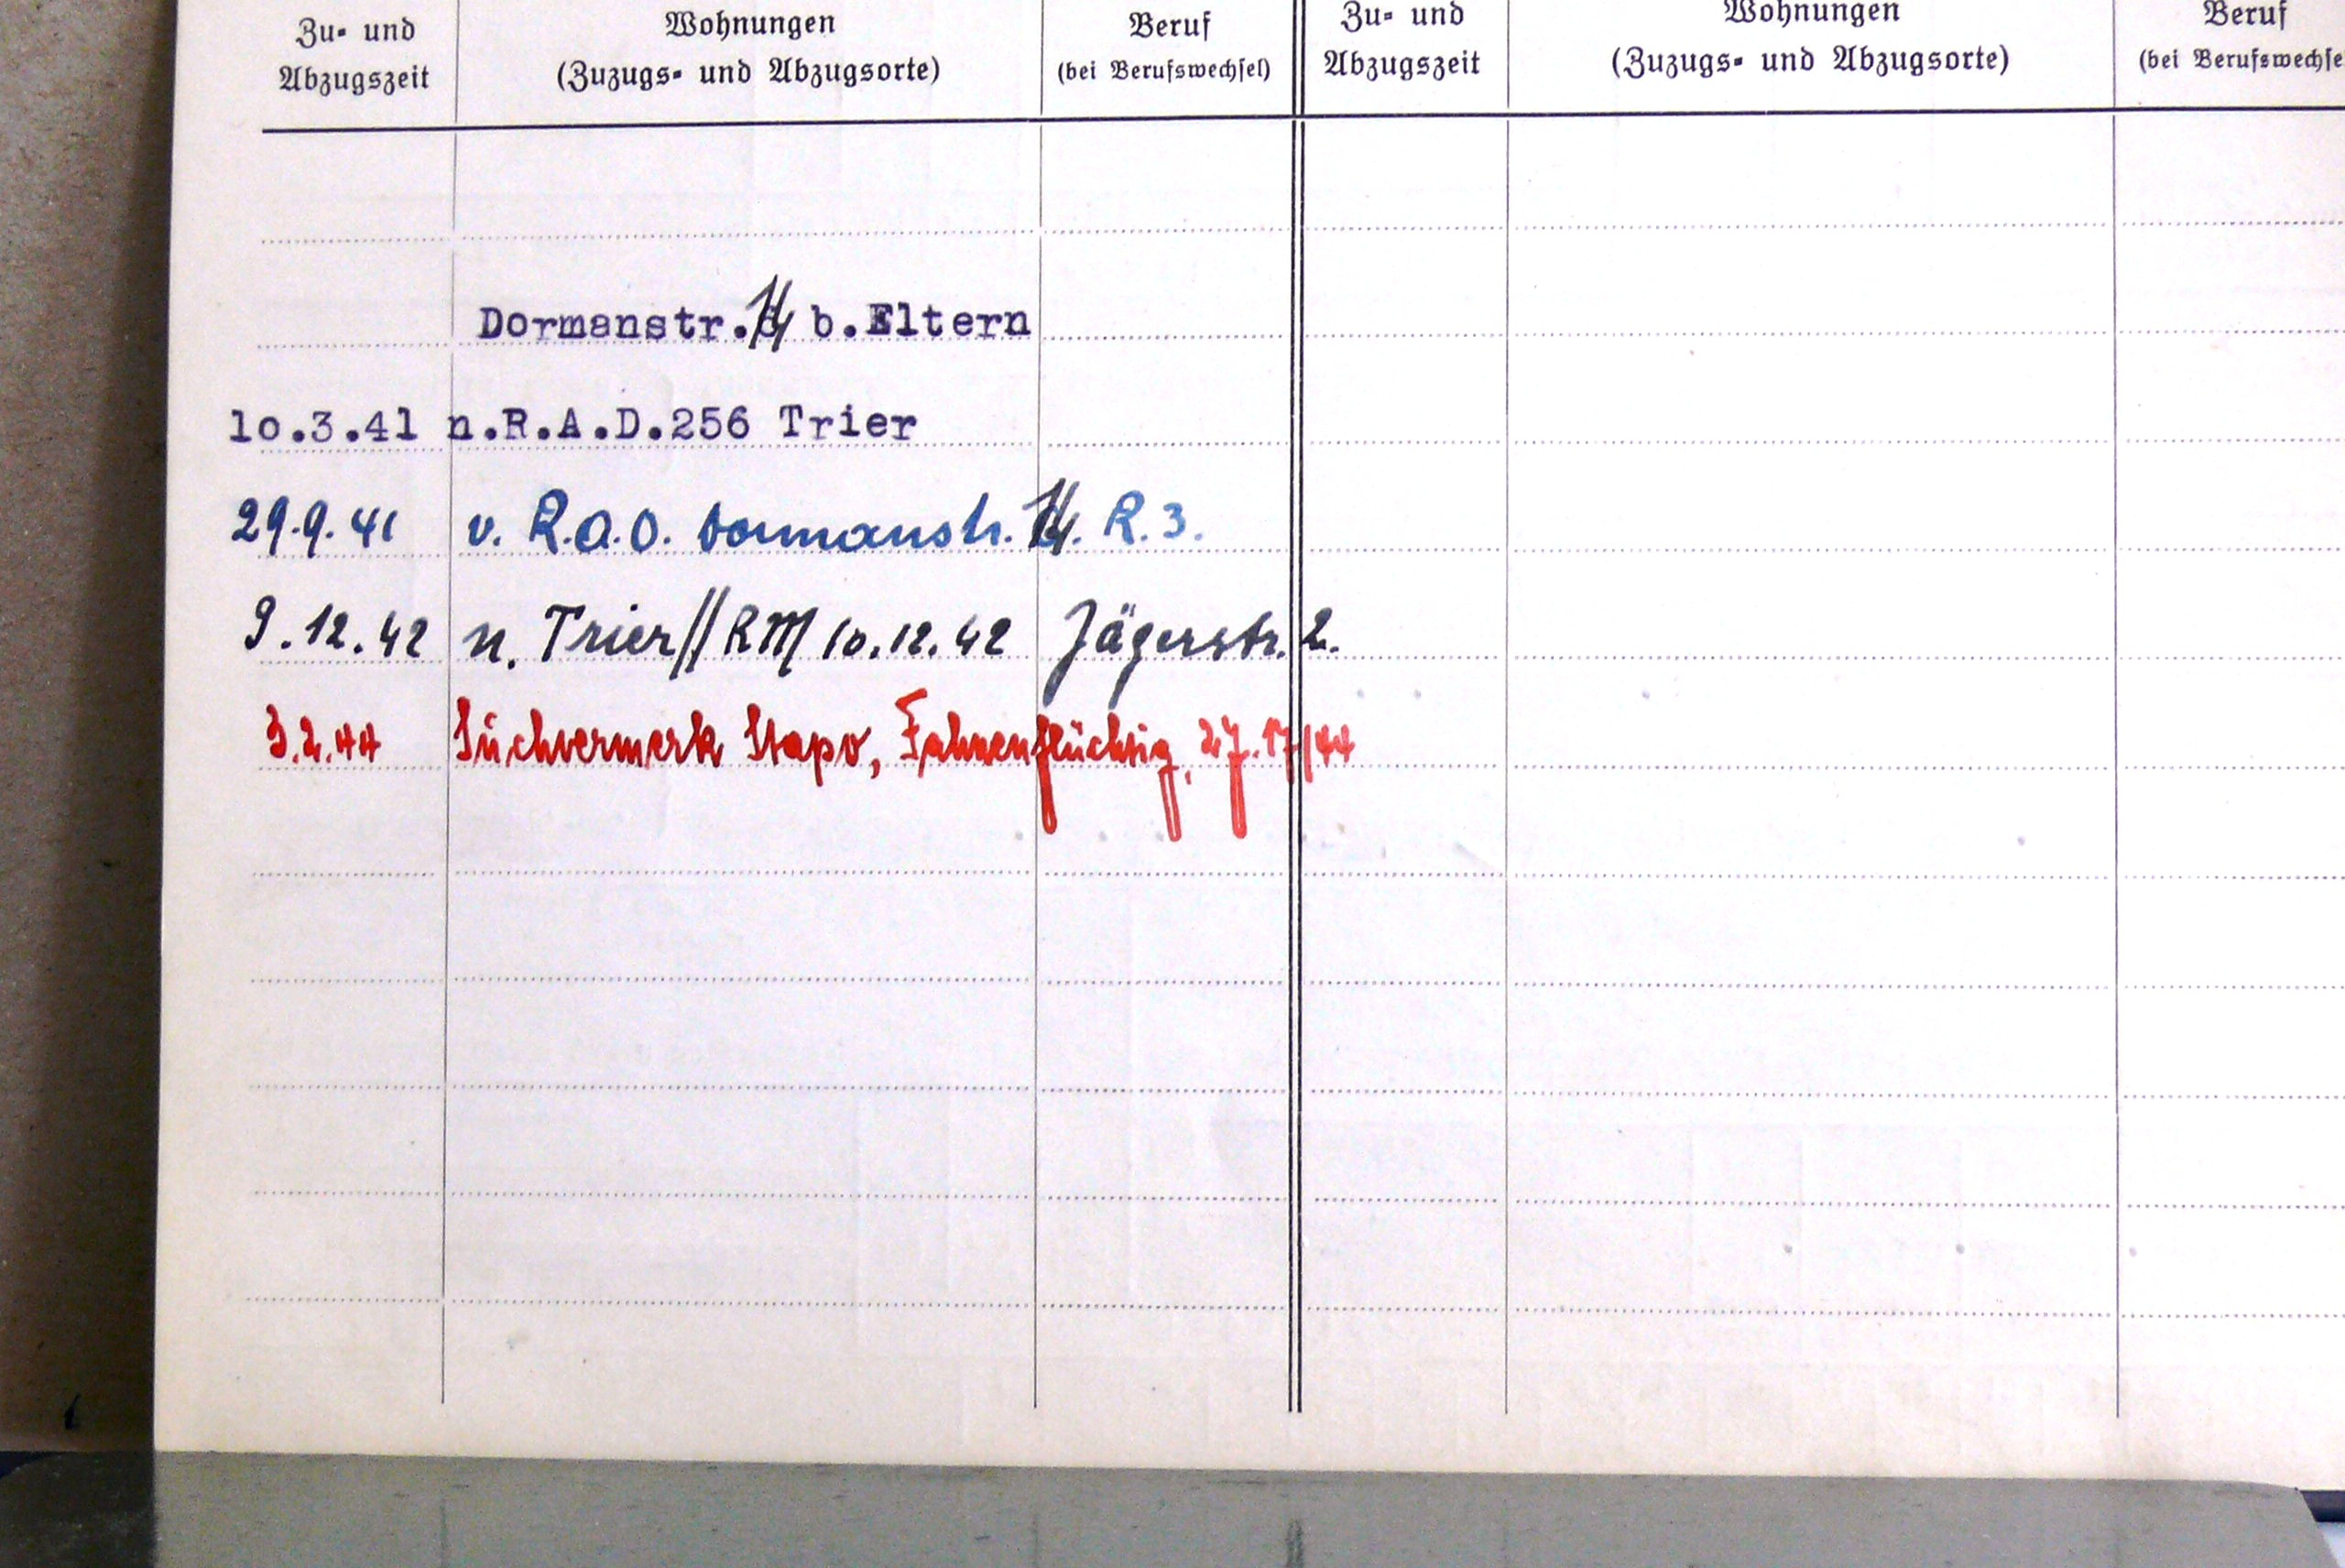 Zu- und Wohnungen Beruf Zu- und Wohnungen Beruf
Abzugszeit (Zuzugs- und Abzugsorte) (bei Berufswechsel) Abzugszeit (Zuzugs- und Abzugsorte) (bei Berufswechse
Dormanstr. 14 b.Eltern
lo.3.41 n.R.A.D.256 Trier
29.9.41 v. R.A.D. Dormanstr. 14. R.3.
9.12.42 n. Trier // RM 10.12.42 Jägerstr. 2.
3.2.44 Suchvermerk Stapo, Fahnenflüchtig, 17/44